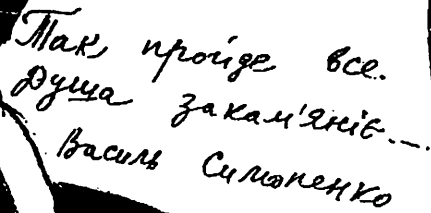 Так пройде все.
Душа закам'яніє...
Василь Симоненко